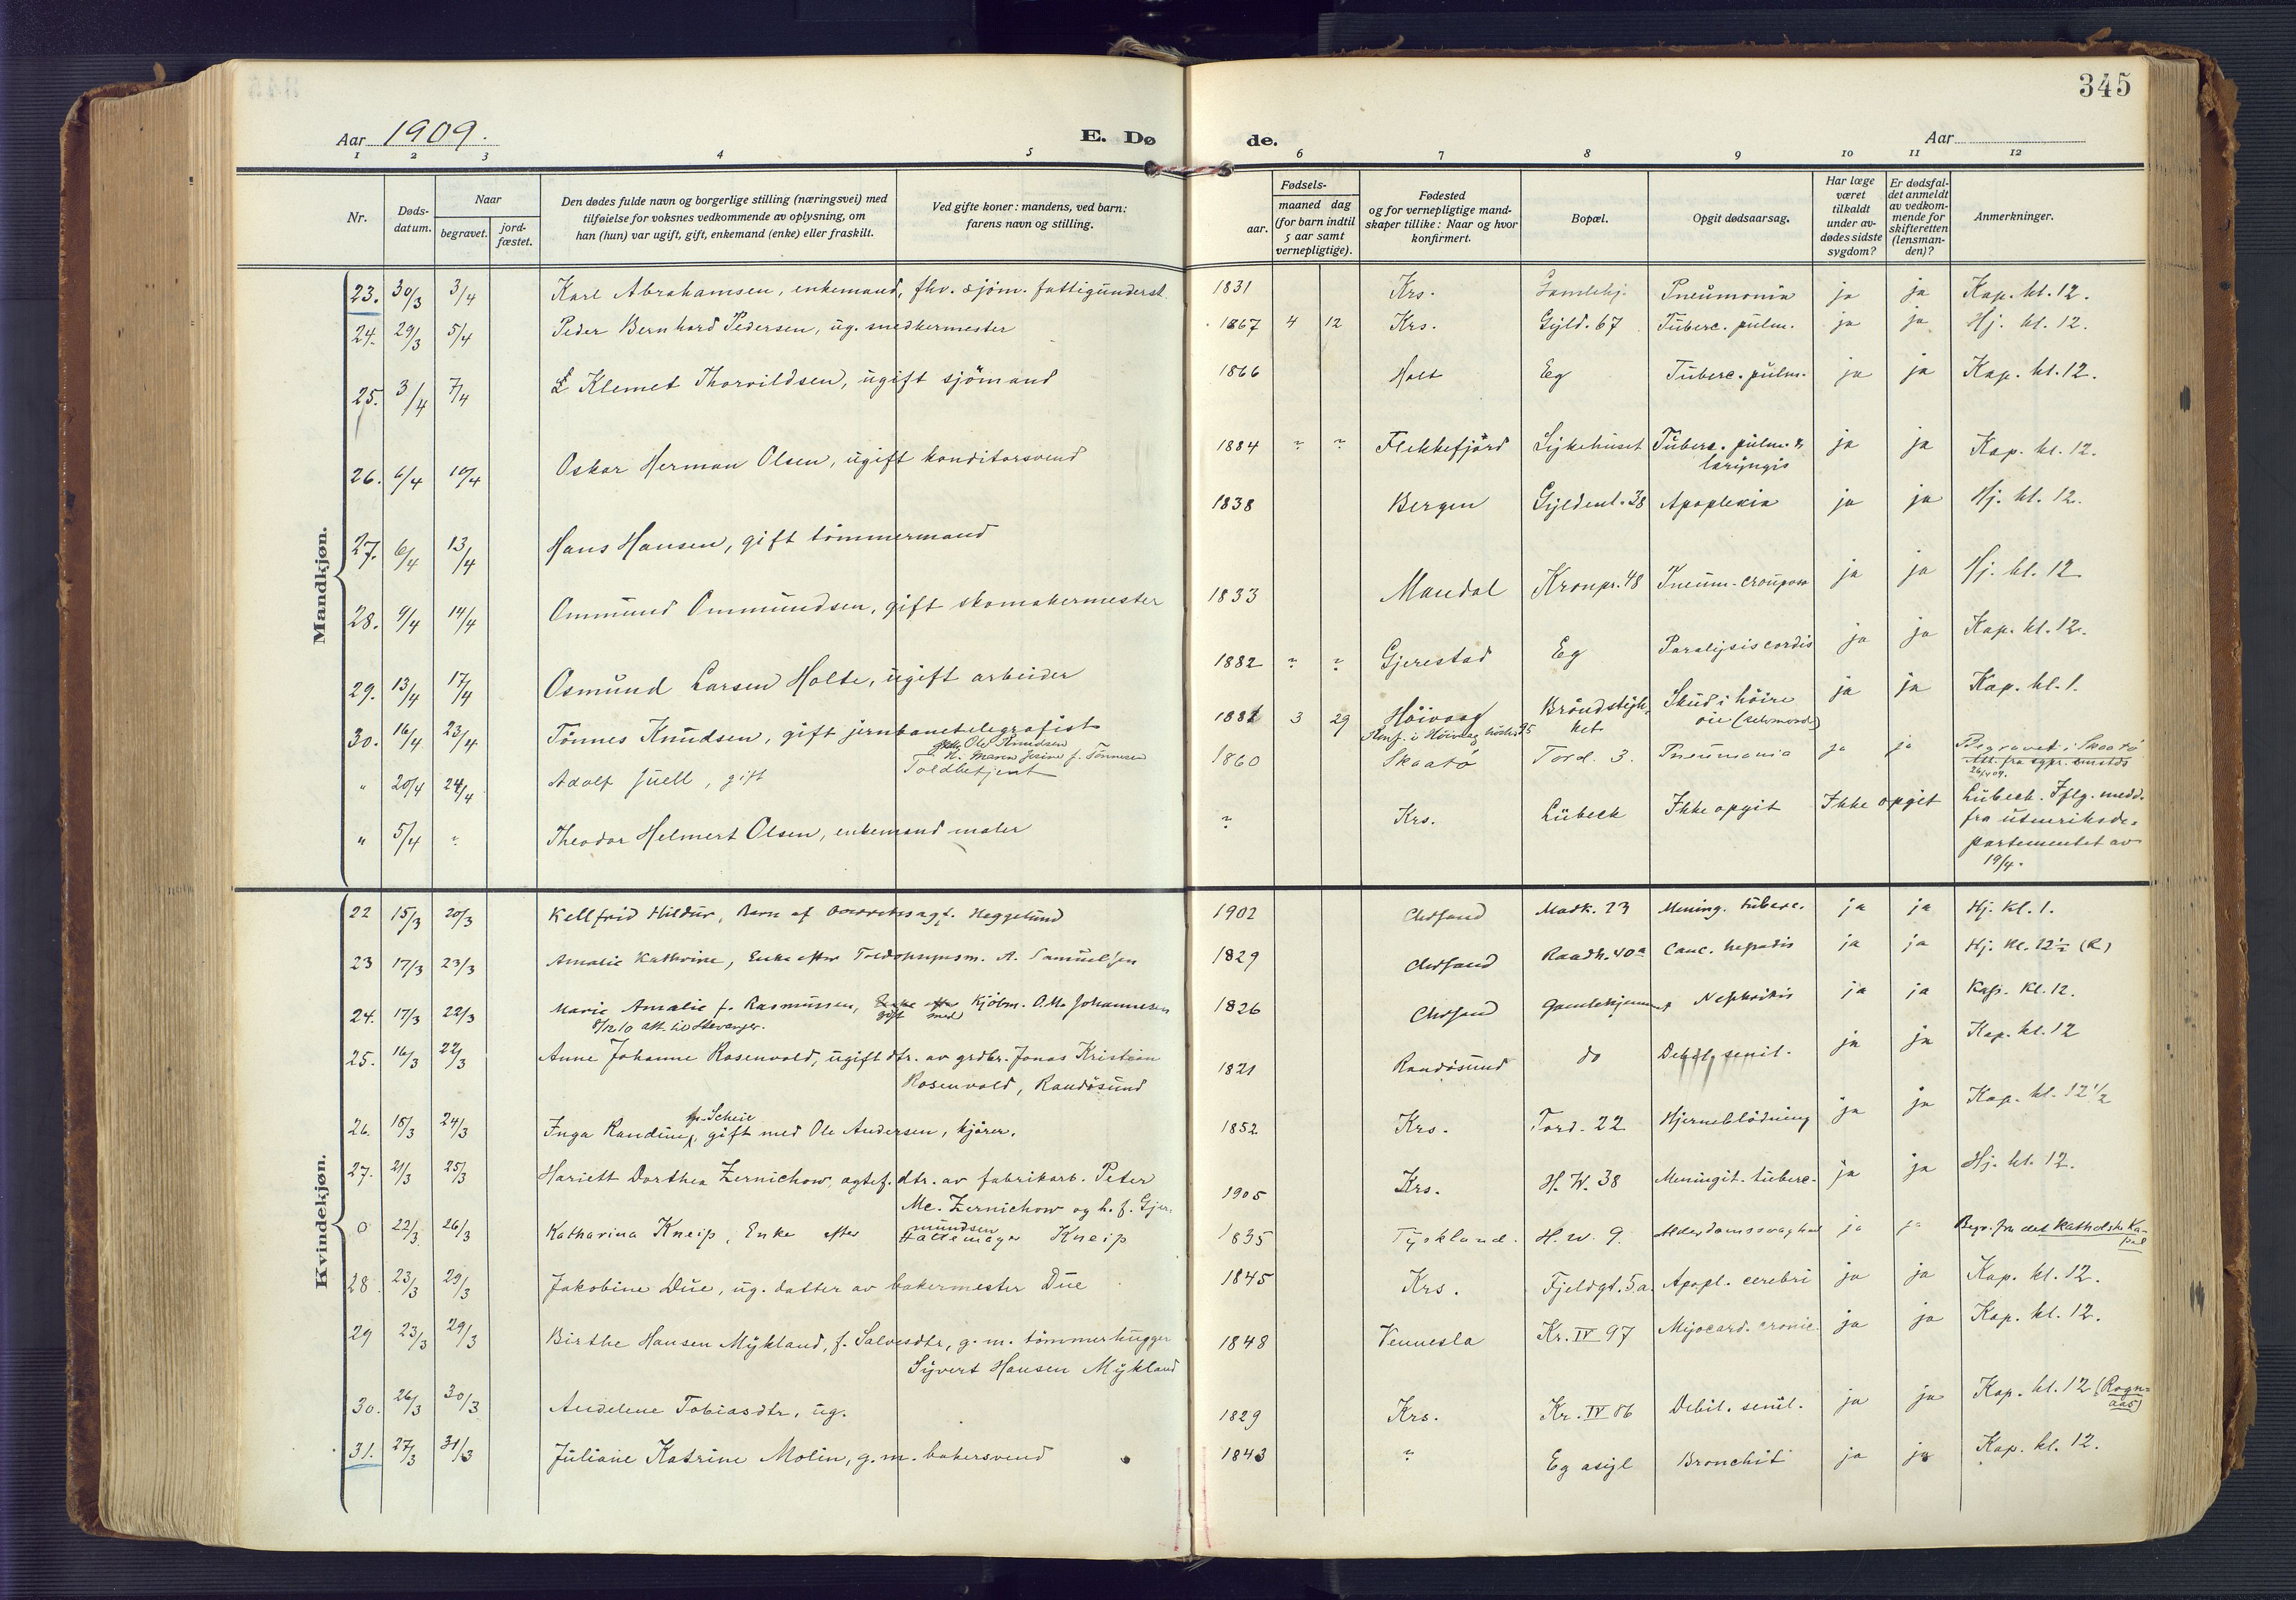 345
Aar 1909.
E. Dø
de.
Aar
1 2 3 4 5 6 7 8 9 10 11 12
Nr.
Døds-
datum.
Naar
begravet.
jord-
fæstet.
Den dødes fulde navn og borgerlige stilling (næringsvei) med
tilføielse for voksnes vedkommende av oplysning, om
han (hun) var ugift, gift, enkemand (enke) eller fraskilt.
Ved gifte koner: mandens, ved barn:
farens navn og stilling.
Fødsels-
aar.
maaned dag
(for barn indtil
5 aar samt
vernepligtige).
Fødested
og for vernepligtige mand-
skaper tillike: Naar og hvor
konfirmert.
Bopæl.
Opgit dødsaarsag.
Har læge
været
tilkaldt
under av-
dødes sidste
sygdom?
Er dødsfal-
det anmeldt
av vedkom-
mende for
skifteretten
(lensman-
den)?
Anmerkninger.
Mandkjøn.
23. 30/3 3/4 Karl Abrahamsen, enkemand, fhv. sjöm. fattigunderst. 1831 Krs. Gamlehj. Pneumonia ja ja Kap. kl. 12.
24. 29/3 5/4 Peder Bernhard Pedersen, ug. snedkermester 1867 4 12 Krs. Gyld. 67 Tuberc. pulm. ja ja Hj. kl. 12.
25. 3/4 7/4 Klemet Thorvildsen, ugift sjömand 1866 Holt Eg Tuberc. pulm. ja ja Kap. kl. 12.
26. 6/4 10/4 Oskar Herman Olsen, ugift konditorsvend 1884 ? ? Flekkefjord Sykehuset Tuberc. pulm. &
laryngis ja ja Kap. kl. 12.
27. 6/4 13/4 Hans Hansen, gift tömmermand 1838 Bergen Gyldenl. 38 Apoplexia ja ja Hj. kl. 12.
28. 9/4 14/4 Ommund Ommundsen, gift skomakermester 1833 Mandal Kronpr. 48 Pneum. croupos ja ja Hj. kl. 12
29. 13/4 17/4 Osmund Larsen Holte, ugift arbeider 1882 ? ? Gjerestad Eg Paralysis cordis ja ja Kap. kl. 12.
30. 16/4 23/4 Tönnes Knudsen, gift jernbanetelegrafist 1881 3 29 Höivaag Bröndstyk-
ket Skud i höire
öie (selvmord) ja ja Kap. kl. 1.
Ole Knudsen
Konf. i Höivaag
H. Maren Josine f. Tönnesen
" 20/4 24/4 Adolf Juell, gift Toldbetjent 1860 Skaatö Tord. 3. Pneumonia ja ja Begravet i Skaatö
26/4 09.
" 5/4 ? Theodor Helmert Olsen, enkemand maler ? Krs. Lübeck Ikke opgit Ikke opgit Lübeck. Iflg. medd.
fra utenriksde-
partementet av
19/4.
Kvindekjøn.
22 15/3 20/3 Kellfrid Hildur, Barn af Heggelund 1902 Chrsand Markt. 23 Mening. tuberc. ja ja Hj. kl. 1.
23 17/3 23/3 Amalie Kathrine, Enke efter Toldopsynsm. A. Samuelsen 1829 Chrsand Raadh. 40a Canc. hepatis ja ja Hj. kl. 12½ (R)
24. 17/3 22/3 Marie Amalie f. Rasmussen, Enke efter Kjölm. O. M. Johannesen 1826 Chrsand Gamlehjemmet Nephritis ja ja Kap. Kl. 12.
gift med
8/12 10 att. til Stavanger.
25. 16/3 22/3 Anne Johanne Rosenvold, ugift dtr. av grdbr. Jonas Kristian
Rosenvold, Randösund 1821 Randösund do Debil. senil. ja ja Kap. kl. 12
26. 18/3 24/3 Inga Randine, f. Scheie gift med Ole Andersen, kjörer. 1852 Krs. Tord. 22 Hjerneblödning ja ja Kap. kl. 12 1/2
27. 21/3 25/3 Hariett Dorthea Zernichow, egtef. dtr. av fabrikarb. Peter
Mc. Zernichow og h. f. Gjer-
mundsen 1905 Krs. H. W. 38 Meningit. tuberc. ja ja Hj. kl. 12.
0 22/3 26/3 Katharina Kneip, Enke efter Hattemager Kneip 1835 Tyskland. H. W. 9. Alderdomssvaghed ja ja Begr. fra det katholske Ka-
pel
28. 23/3 29/3 Jakobine Due, ug. datter av bakermester Due 1845 Krs. Fjeldgt. 5a. Apopl. cerebri ja ja Kap. kl. 12.
29 23/3 29/3 Birthe Hansen Mykland, f. Salvesdtr, g. m. tömmerhugger
Syvert Hansen Mykland 1848 Vennesla Kr. IV 97 Myocard. cronic. ja ja Kap. kl. 12.
30. 26/3 30/3 Andelene Tobiasdtr, ug. 1829 Krs. Kr. IV 86 Debil. senil. ja ja Kap. kl. 12 (Rogn-
aas)
31. 27/3 31/3 Juliane Katrine Molin, g. m. bakersvend 1843 ? Eg asyl Bronchit ja ja Kap. kl. 12.